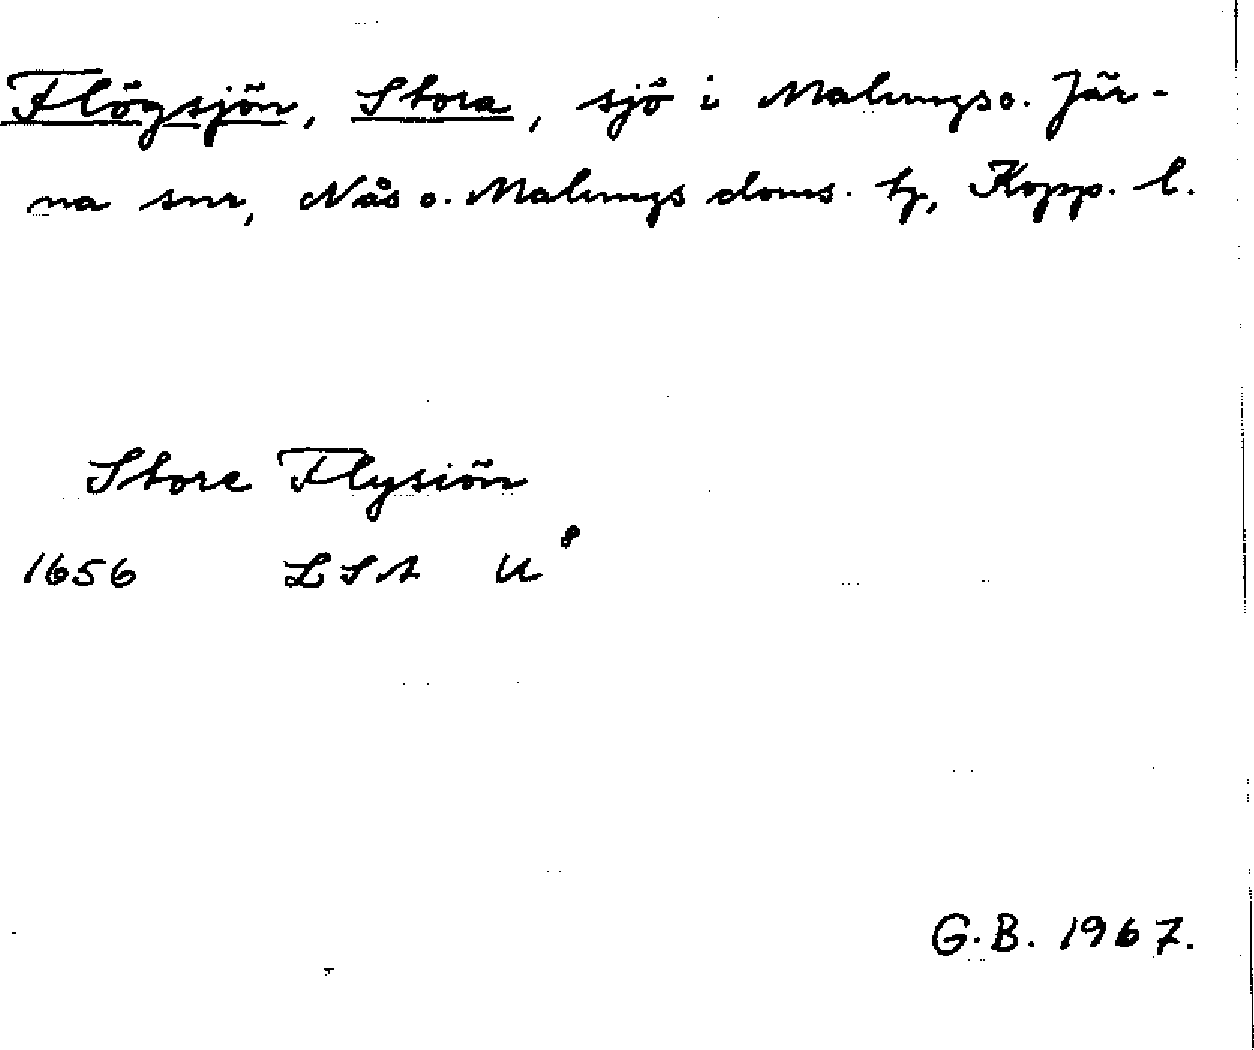 Flögsjön, Stora, sjö i Malungs o. Jär-
na snr, Nås o. Malungs doms. tg, Kopp. l.
Store Flysiön
1656 LSA U⁸
G.B. 1967.